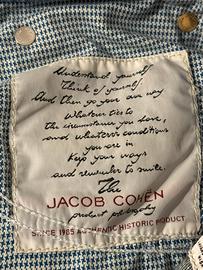 Understand yourself
Think of yourself
And then go your own way
Whatever ties to
the circumstance you have,
and whatever conditions
you are in
Keep your ways
and remember to smile.
The
JACOB COHËN
product philosophy
SINCE 1985 AUTHENTIC HISTORIC PRODUCT